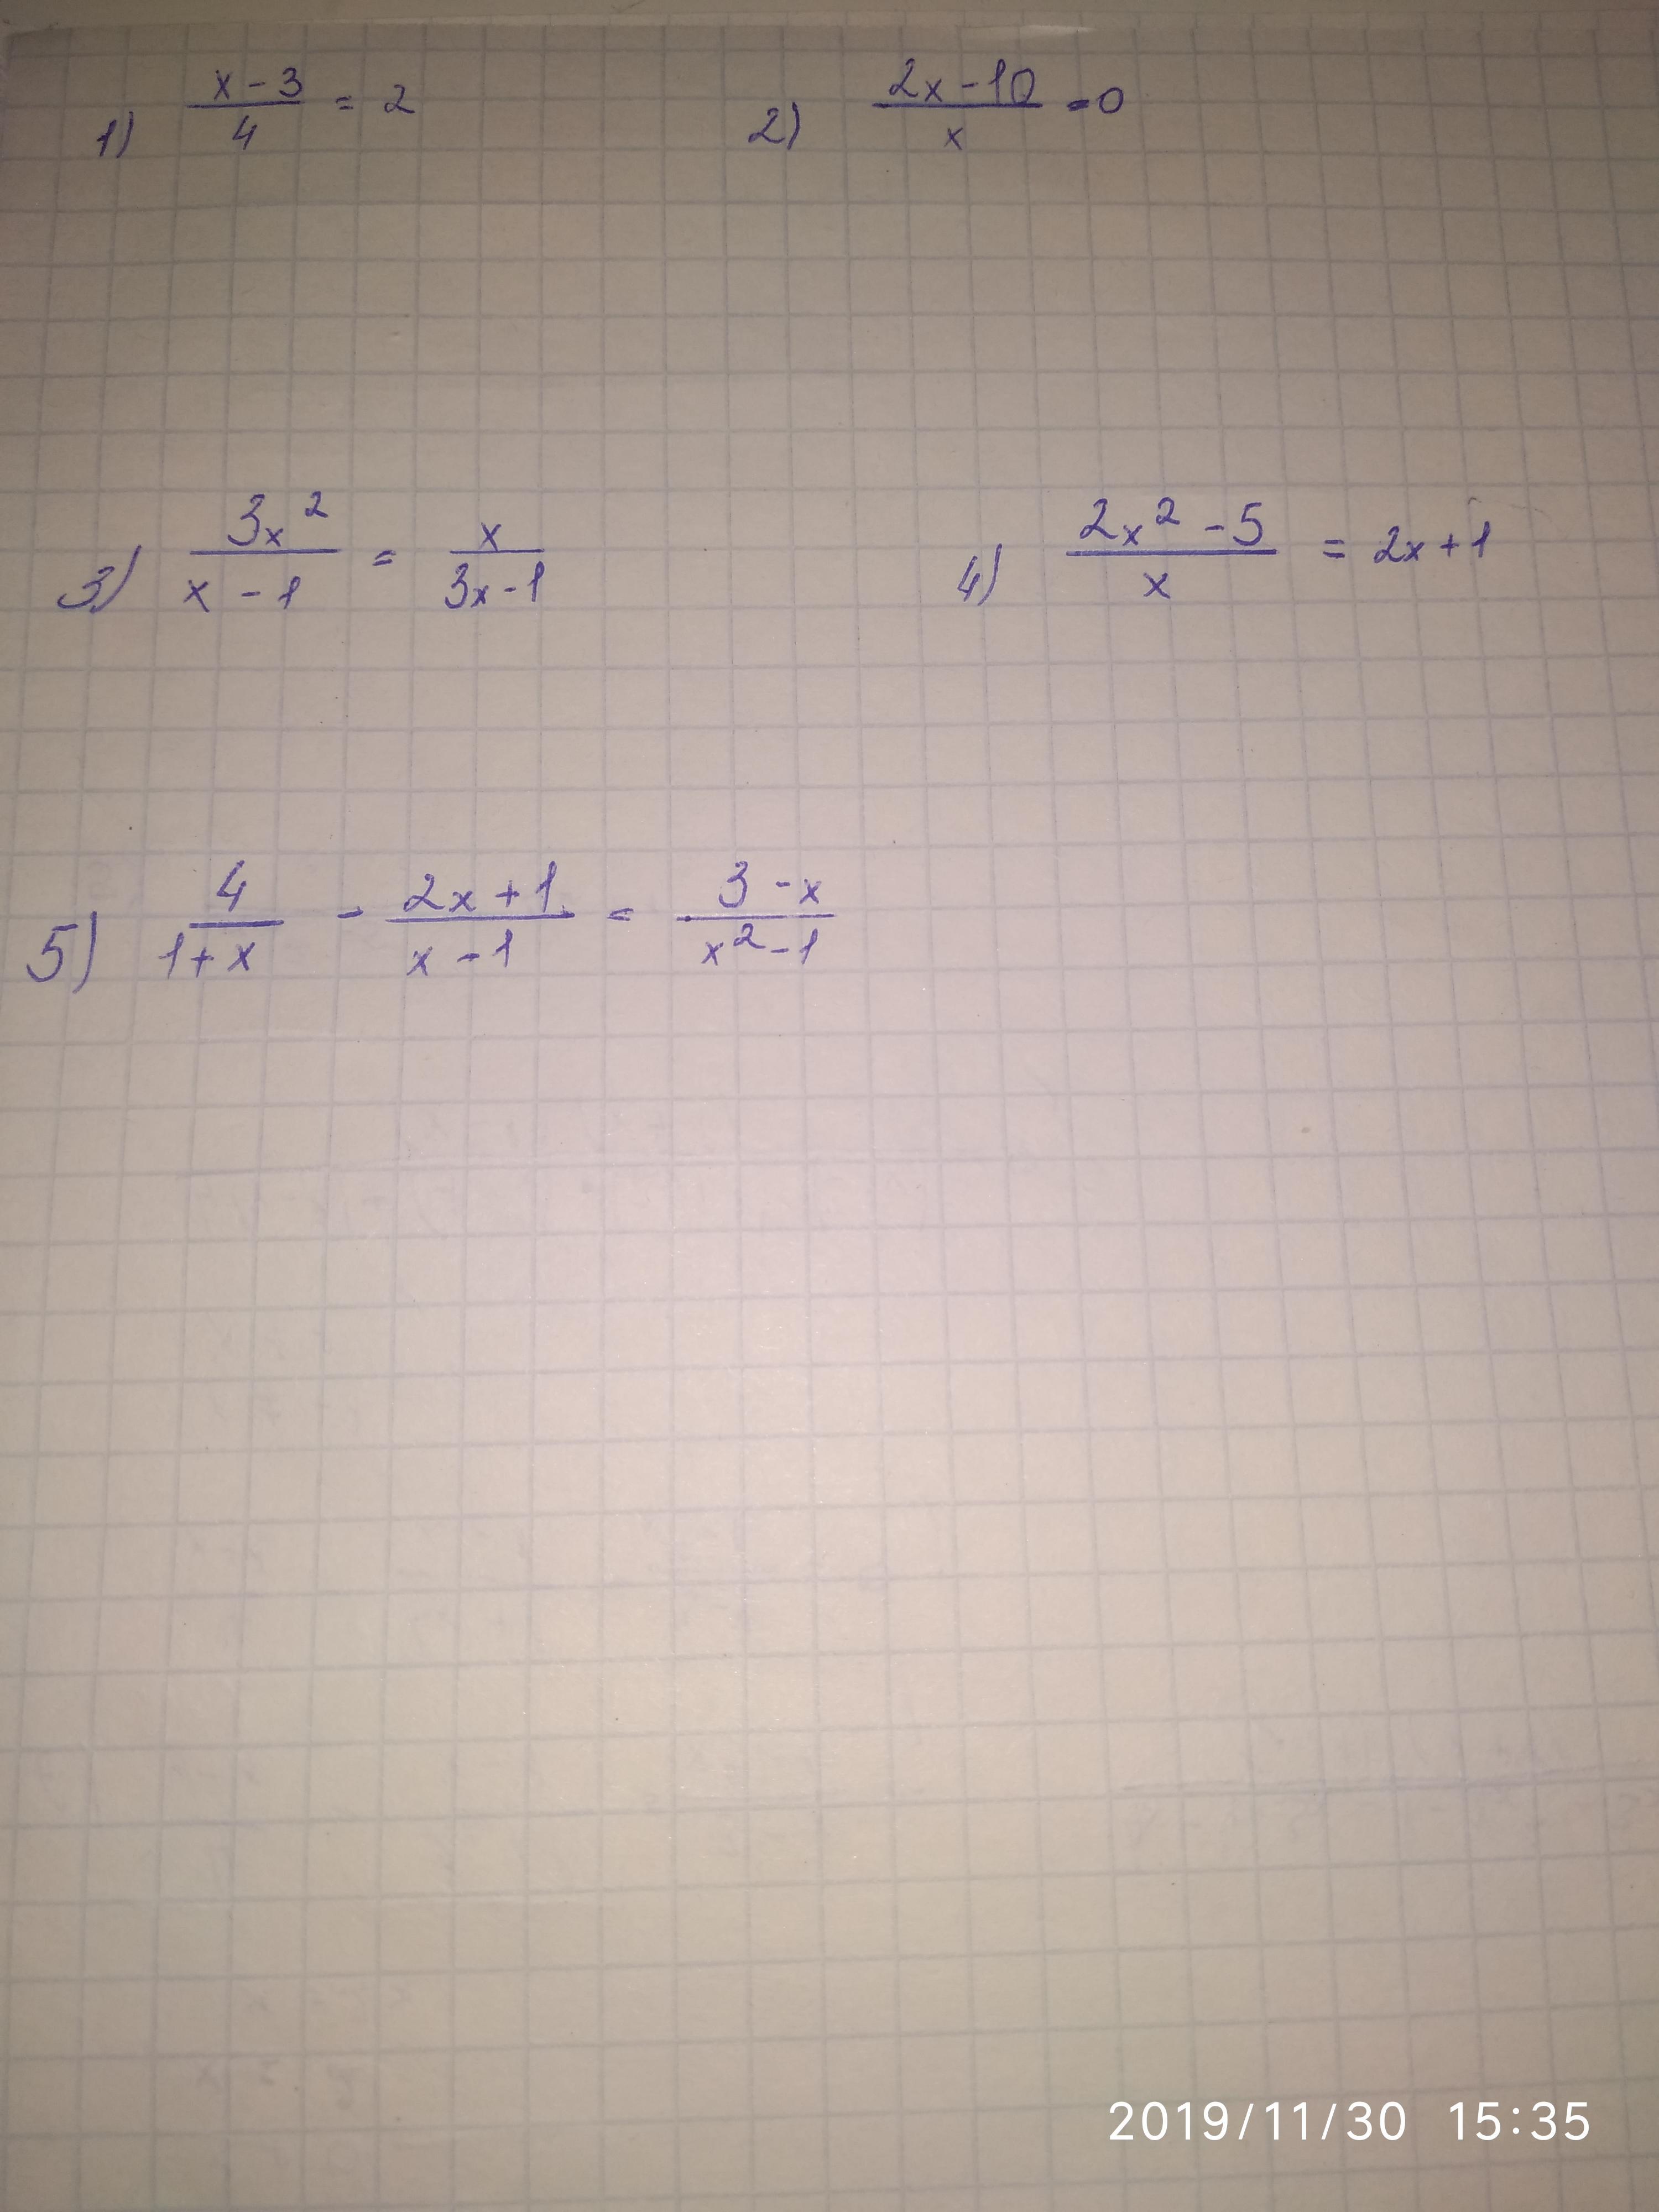 1) (x - 3)/4 = 2    2) (2x - 10)/x = 0
3) 3x²/(x - 1) = x/(3x - 1)    4) (2x² - 5)/x = 2x + 1
5) 4/(1 + x) - (2x + 1)/(x - 1) = (3 - x)/(x² - 1)
2019/11/30 15:35